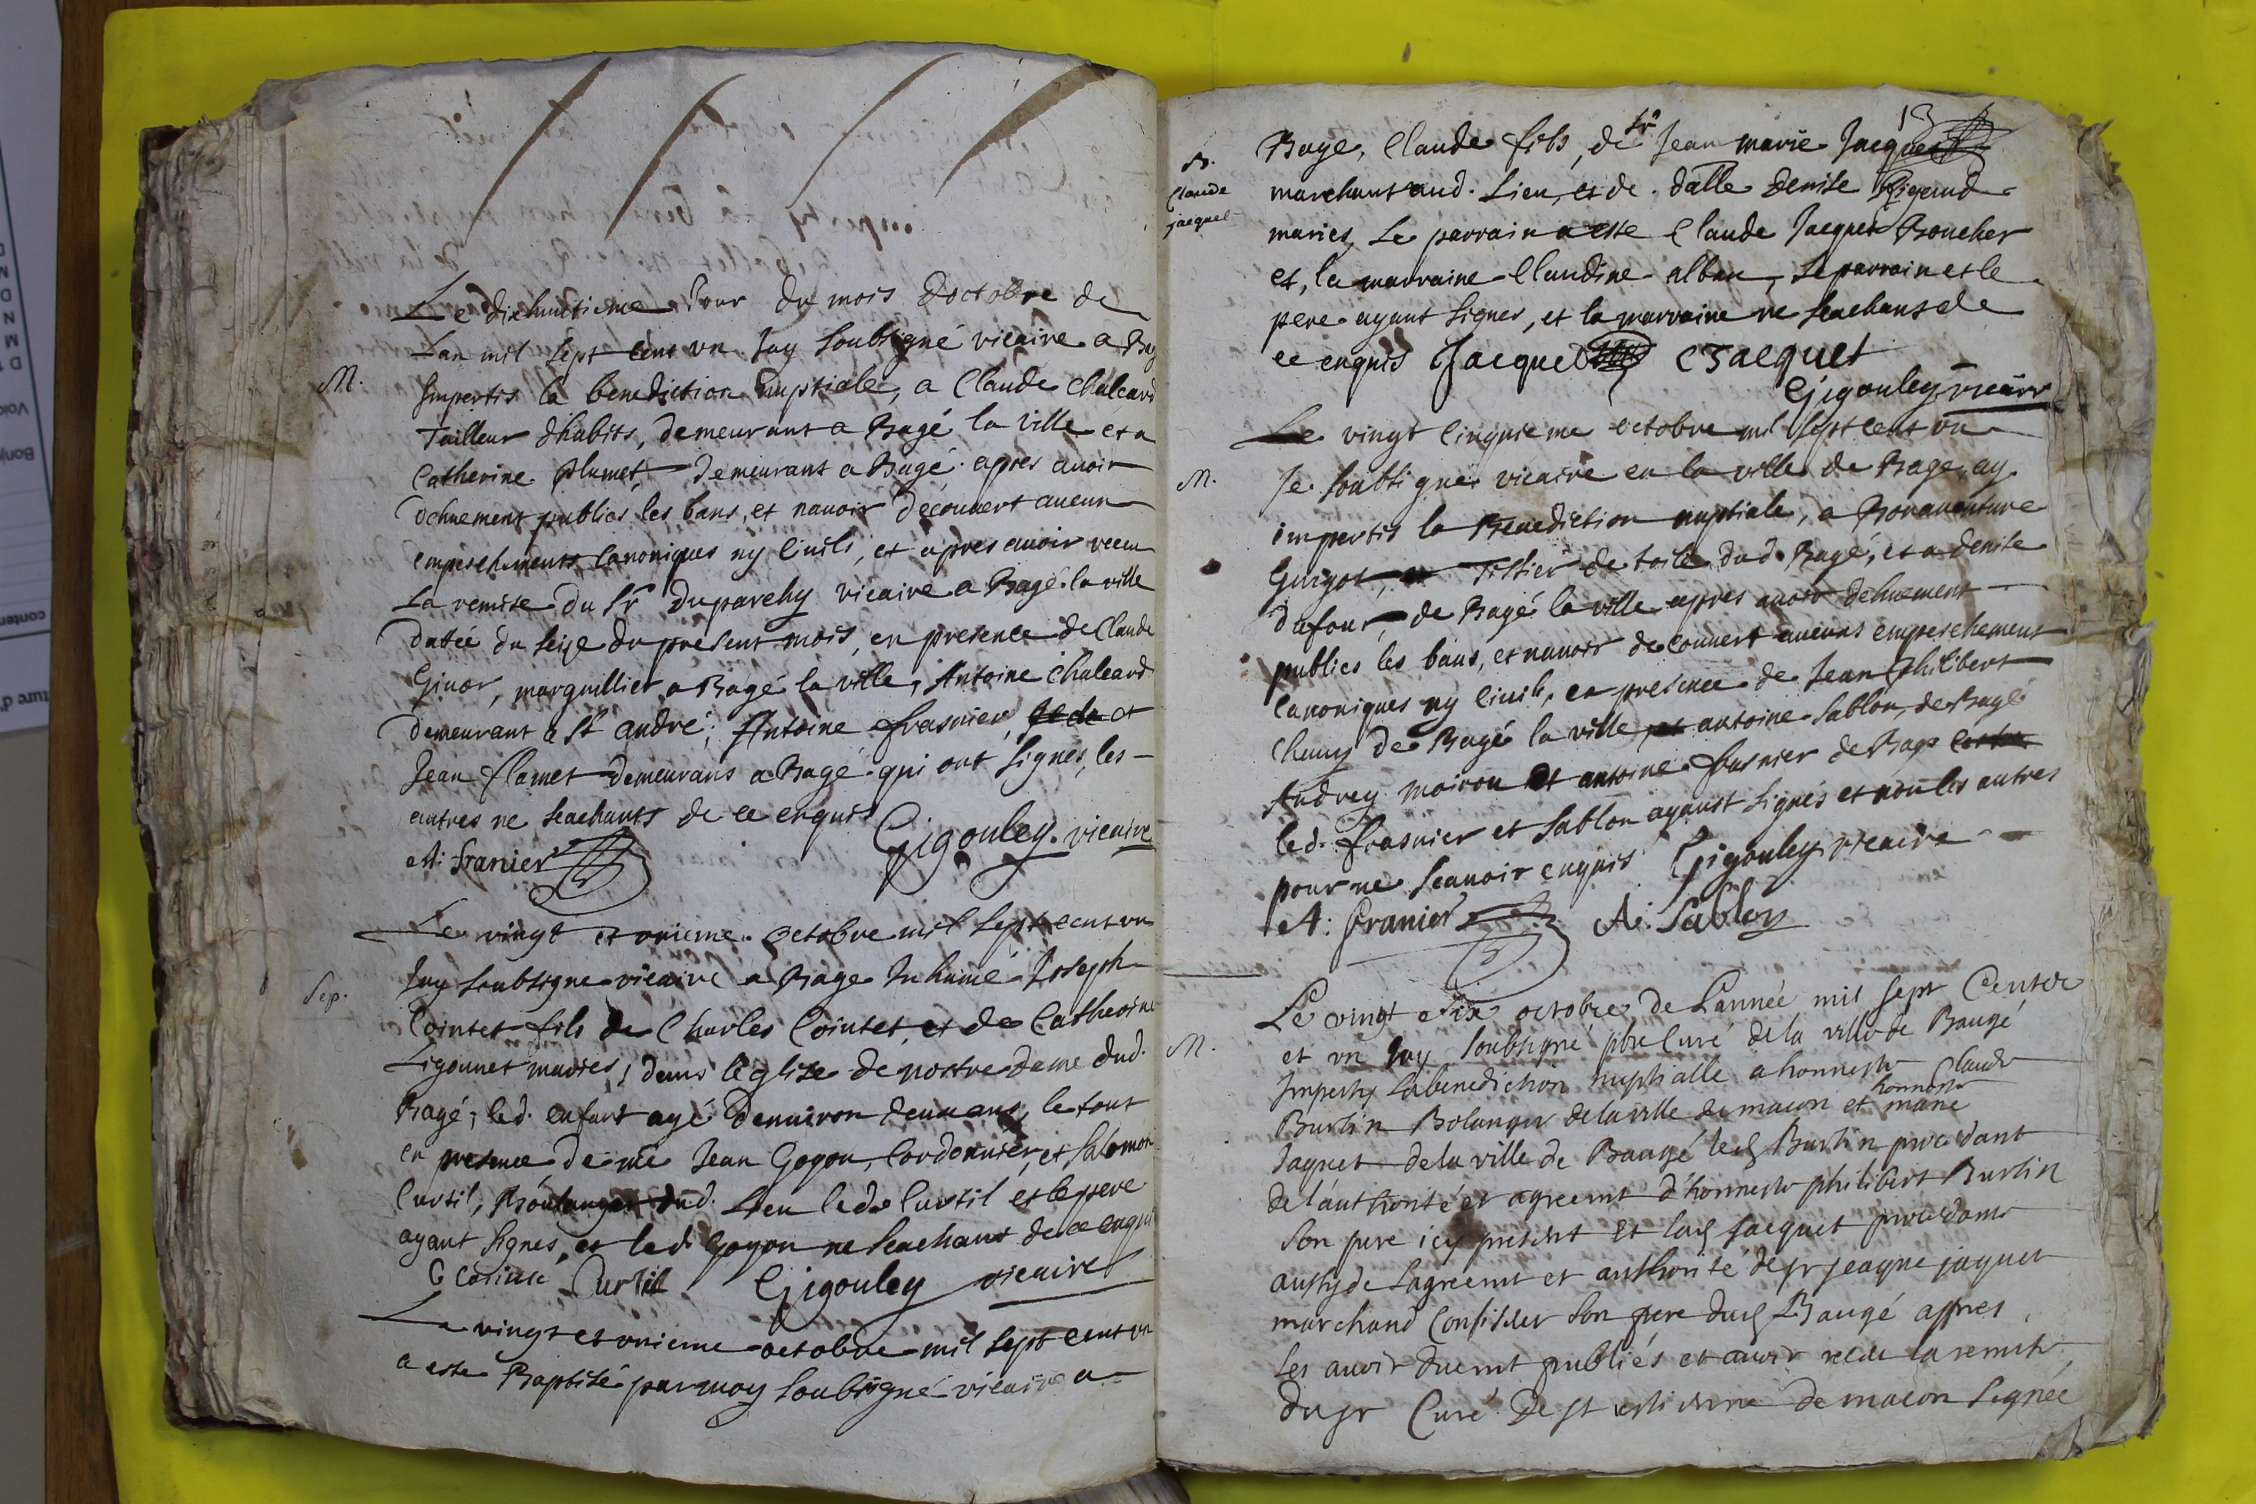 Le dixhuictieme Jour du mois doctobre de
Lan mil sept cens un Jay soubsigné vicaire a Bag
M.
Impertis la benediction nuptiale, a Claude Chaleard
Tailleur dhabits, demeurant a Bagé la ville et a
Catherine Plumet, demeurant a Bagé. apres avoir
dehuement publies les bans, et navoir decouvert aucun
empeschements Canoniques ny Civils, et apres avoir receu
La remise du Sr Duparchy vicaire a Bagé la ville
Datée du seize du present mois, en presence de Claude
, marguillier a Bagé la ville, Antoine Chaleard
demeurant a St andré, Antoine frasnier, et
Jean flamet demeurans a Bagé qui ont signés, les
autres ne scachants de ce enquis Gigouley. vicaire
A: franier
Le vingt et unieme octobre mil sept cent un
Sep.
Jay soubsigne vicaire a Bage Inhumé Joseph
Cointet fils de Charles Cointet et de Catherine
Ligounet maries, dans léglise de nostre dame dud.
Bagé, led. enfant agé denuiron deux ans, le tout
en presence de me Jean Goyon, Cordonnier, et Salomon
Curtil, Boulanger dud. Lieu led. Curtil et le pere
ayant signés, et led. Goyon ne scachant de ce enqui
Curtil Gigouley vicaire
Le vingt et unieme octobre mil sept cent un
a este Baptisé par moy soubsigné vicaire a
13
B.
Claude
jacquet
Bage, Claude fils, de sr Jean marie Jacquet
marchant aud. Lieu, et de dalle denise Rigaud
maries, Le parrain a este Claude Jacquet Boucher
et, la marraine Claudine alban, le parrain et le
pere ayant signes, et la marraine ne scachans de
ce enquis Jacquet C Jacquet
Gigouley vicaire
Le vingt Cinquieme octobre mil sept cent un
M.
Je soubsigne vicaire en la ville de Bage ay
impertis la Benediction nuptiale, a Bonaventure
Guigot, Tissier de toile dud. Bagé, et a denise
dufour, de Bagé la ville apres avoir dehuement
publies les bans, et navoir decouvert aucuns empeschement
Canoniques ny Civils, en presence de Jean Philibert
Chuny de Bagé la ville, antoine Sablon, de Bagé
Andrey moiron et antoine frasnier de Bage
led. frasnier et Sablon ayant signés et non les autres
pour ne scavoir enquis Gigouley vicaire
A: franier A: Sablon
Le vingt Six octobre de Lannée mil sept Cents
M.
et un Jay soubsigné pbre Curé de la ville de Baugé
Imperty La benediction nuptialle a honneste Claude
Burtin Bolanger de la ville de macon et honneste marie
Jaquet de la ville de Baugé led Burtin procedant
de lauthorité et agreemt d'honneste philibert Burtin
Son pere icy present Et lad Jacquet procedant
aussy de Lagreemt et authorité de sr jacque jaquet
marchand Confisseur son pere dud Baugé appres
les avoir duemt publiés et avoir receu la remise
du sr Curé de st estienne de macon Signée